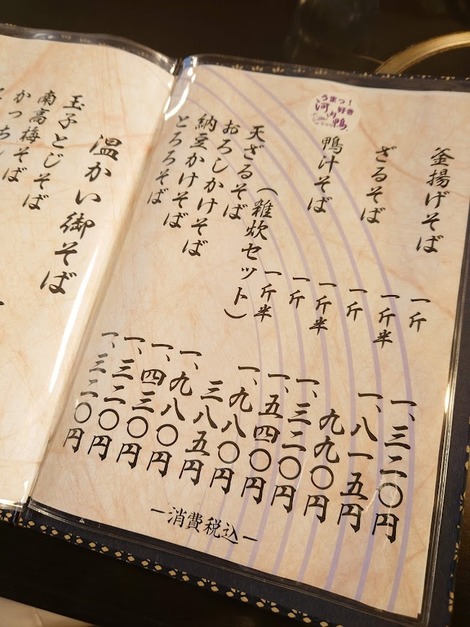 釜揚げそば 一斤 一、三二〇円
一斤半 一、八一五円
ざるそば 一斤 九九〇円
一斤半 一、三二〇円
うまっ！
河内鴨
鴨汁そば 一斤 一、五四〇円
一斤半 一、九八〇円
（雑炊セット） 三八五円
天ざるそば 一、九八〇円
おろしかけそば 一、四三〇円
納豆かけそば 一、三二〇円
とろろそば 一、三二〇円
―消費税込―
温かい御そば
玉子とじそば
南高梅そば